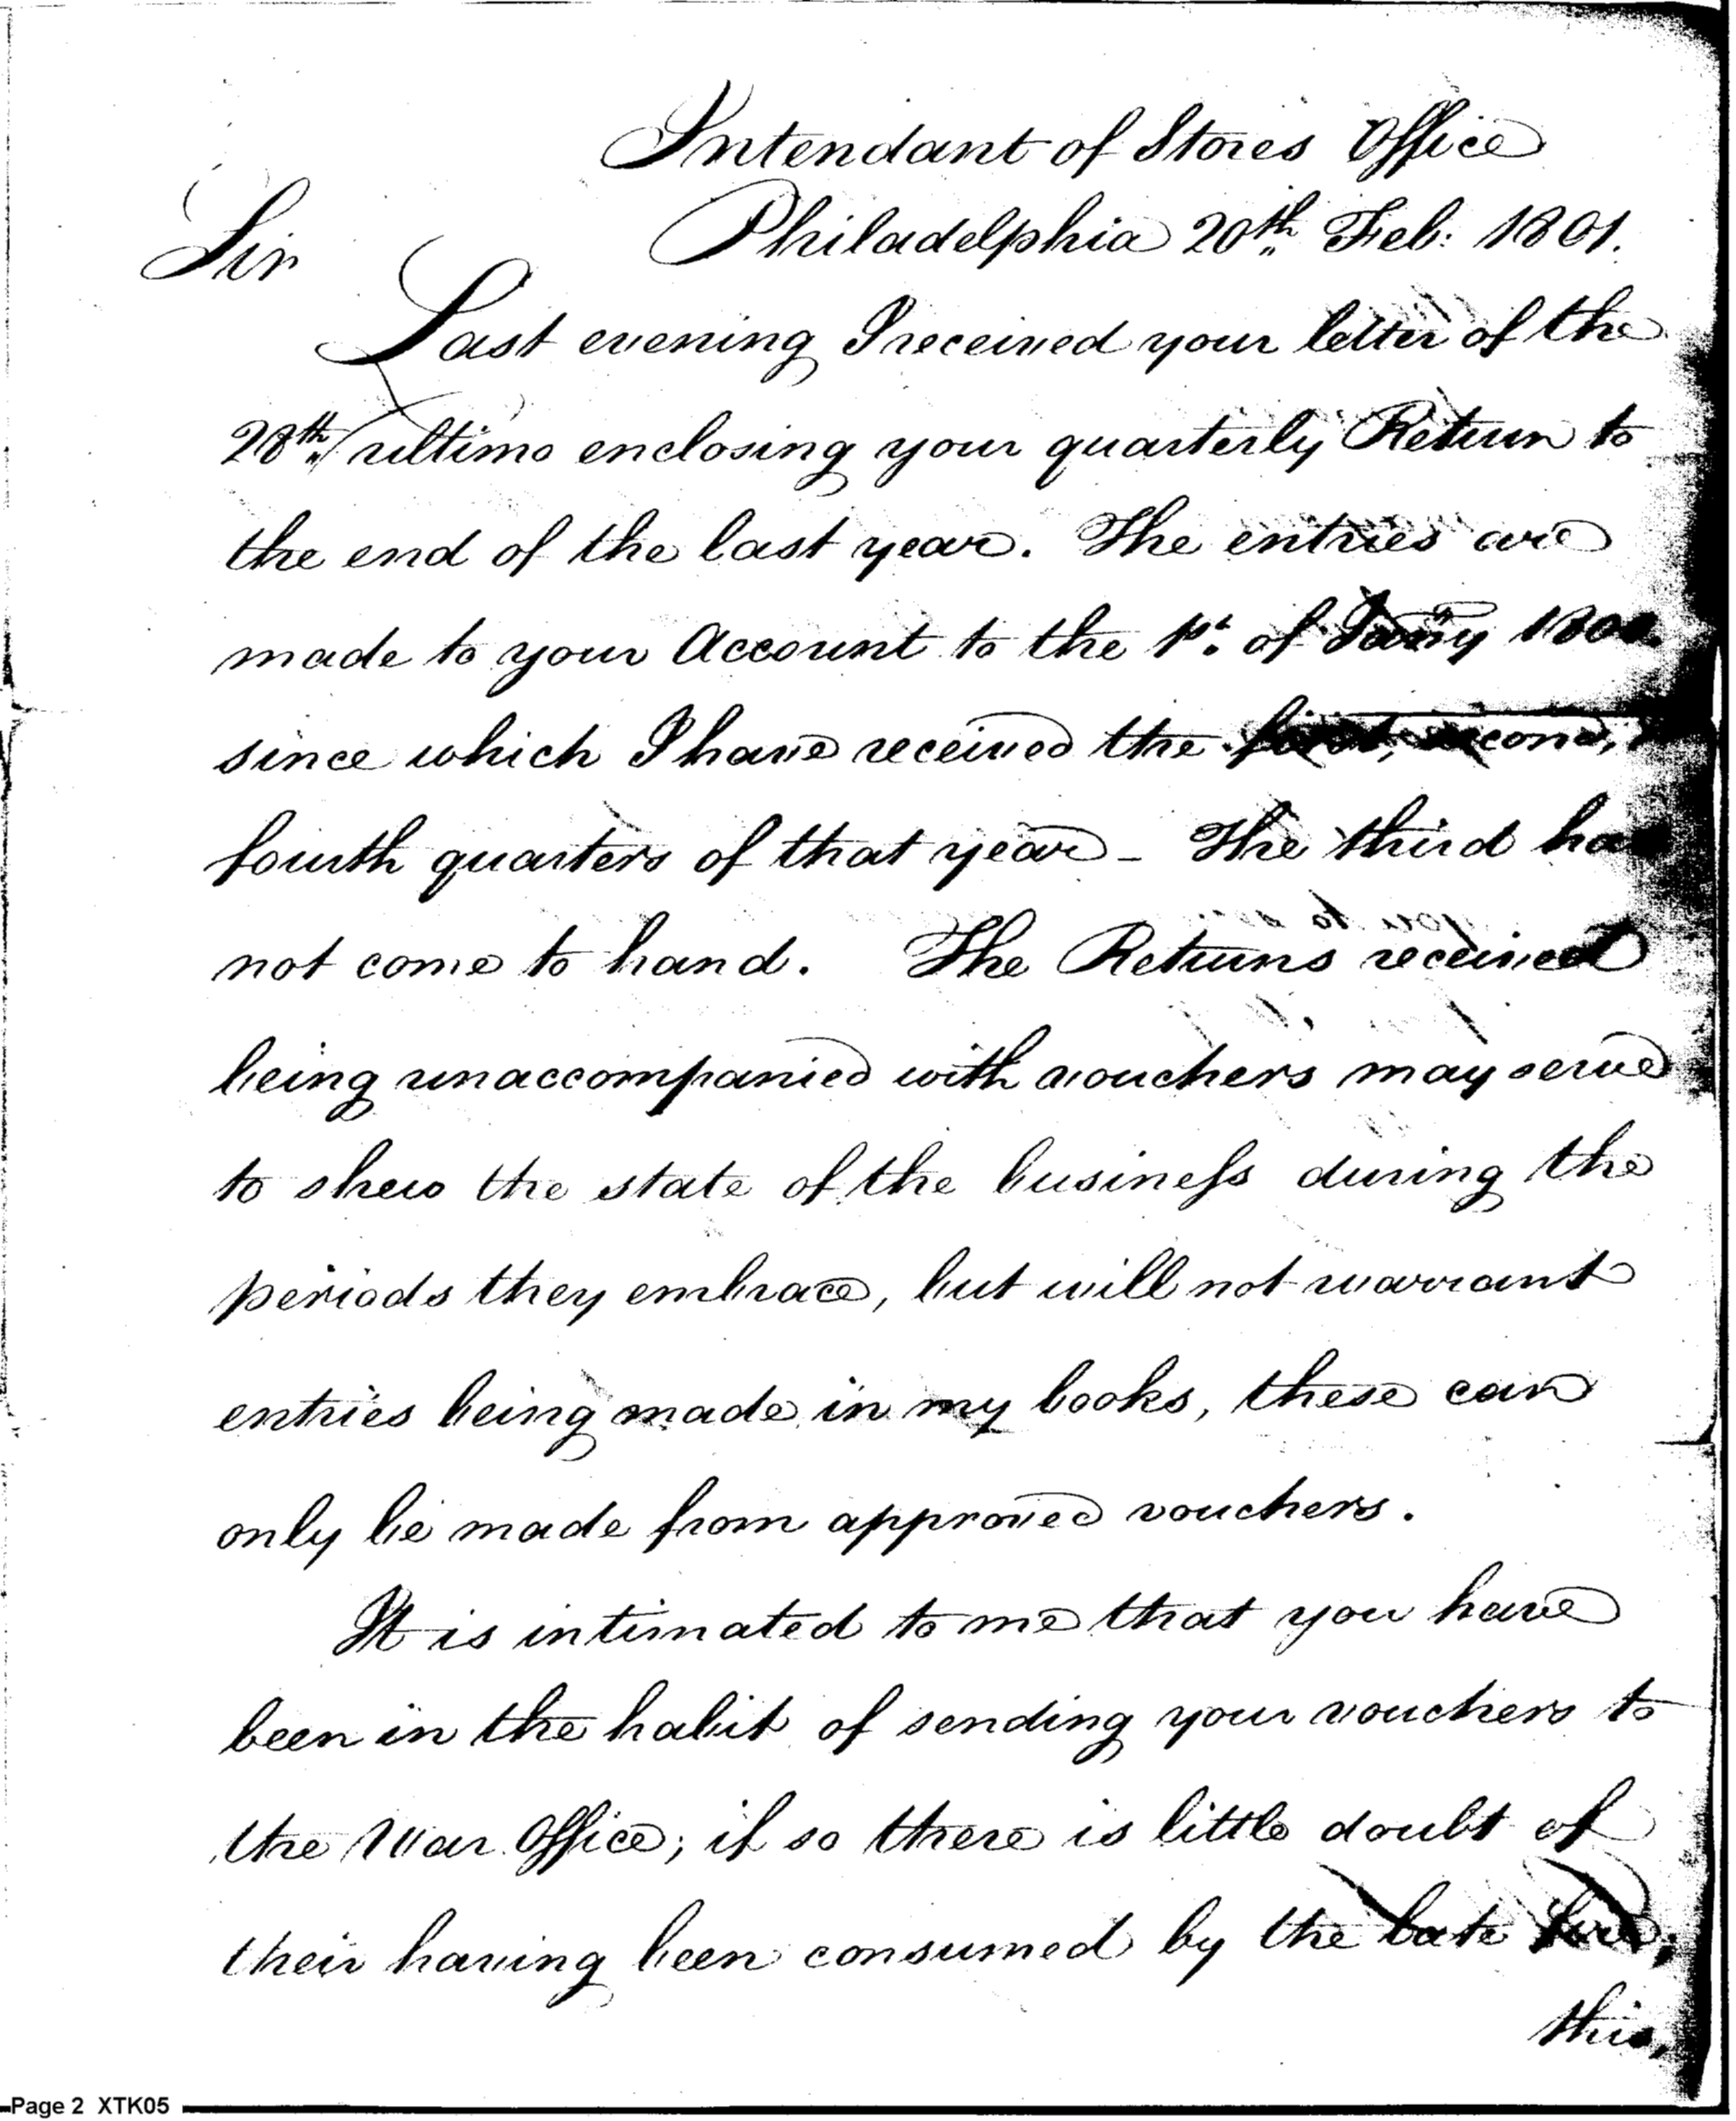 Intendant of Stores Office
Philadelphia 20th Feb: 1801.
Sir
Last evening I received your letter of the
28th ultimo enclosing your quarterly Return to
the end of the last year. The entries are
made to your Account to the 1st of Jan'y 1800
since which I have received the first, second,
fourth quarters of that year _ The third has
not come to hand. The Returns received
being unaccompanied with vouchers may serve
to shew the state of the business during the
periods they embrace, but will not warrant
entries being made in my books, these can
only be made from approved vouchers.
It is intimated to me that you have
been in the habit of sending your vouchers to
the War Office; if so there is little doubt of
their having been consumed by the late fire;
this,
Page 2 XTK05